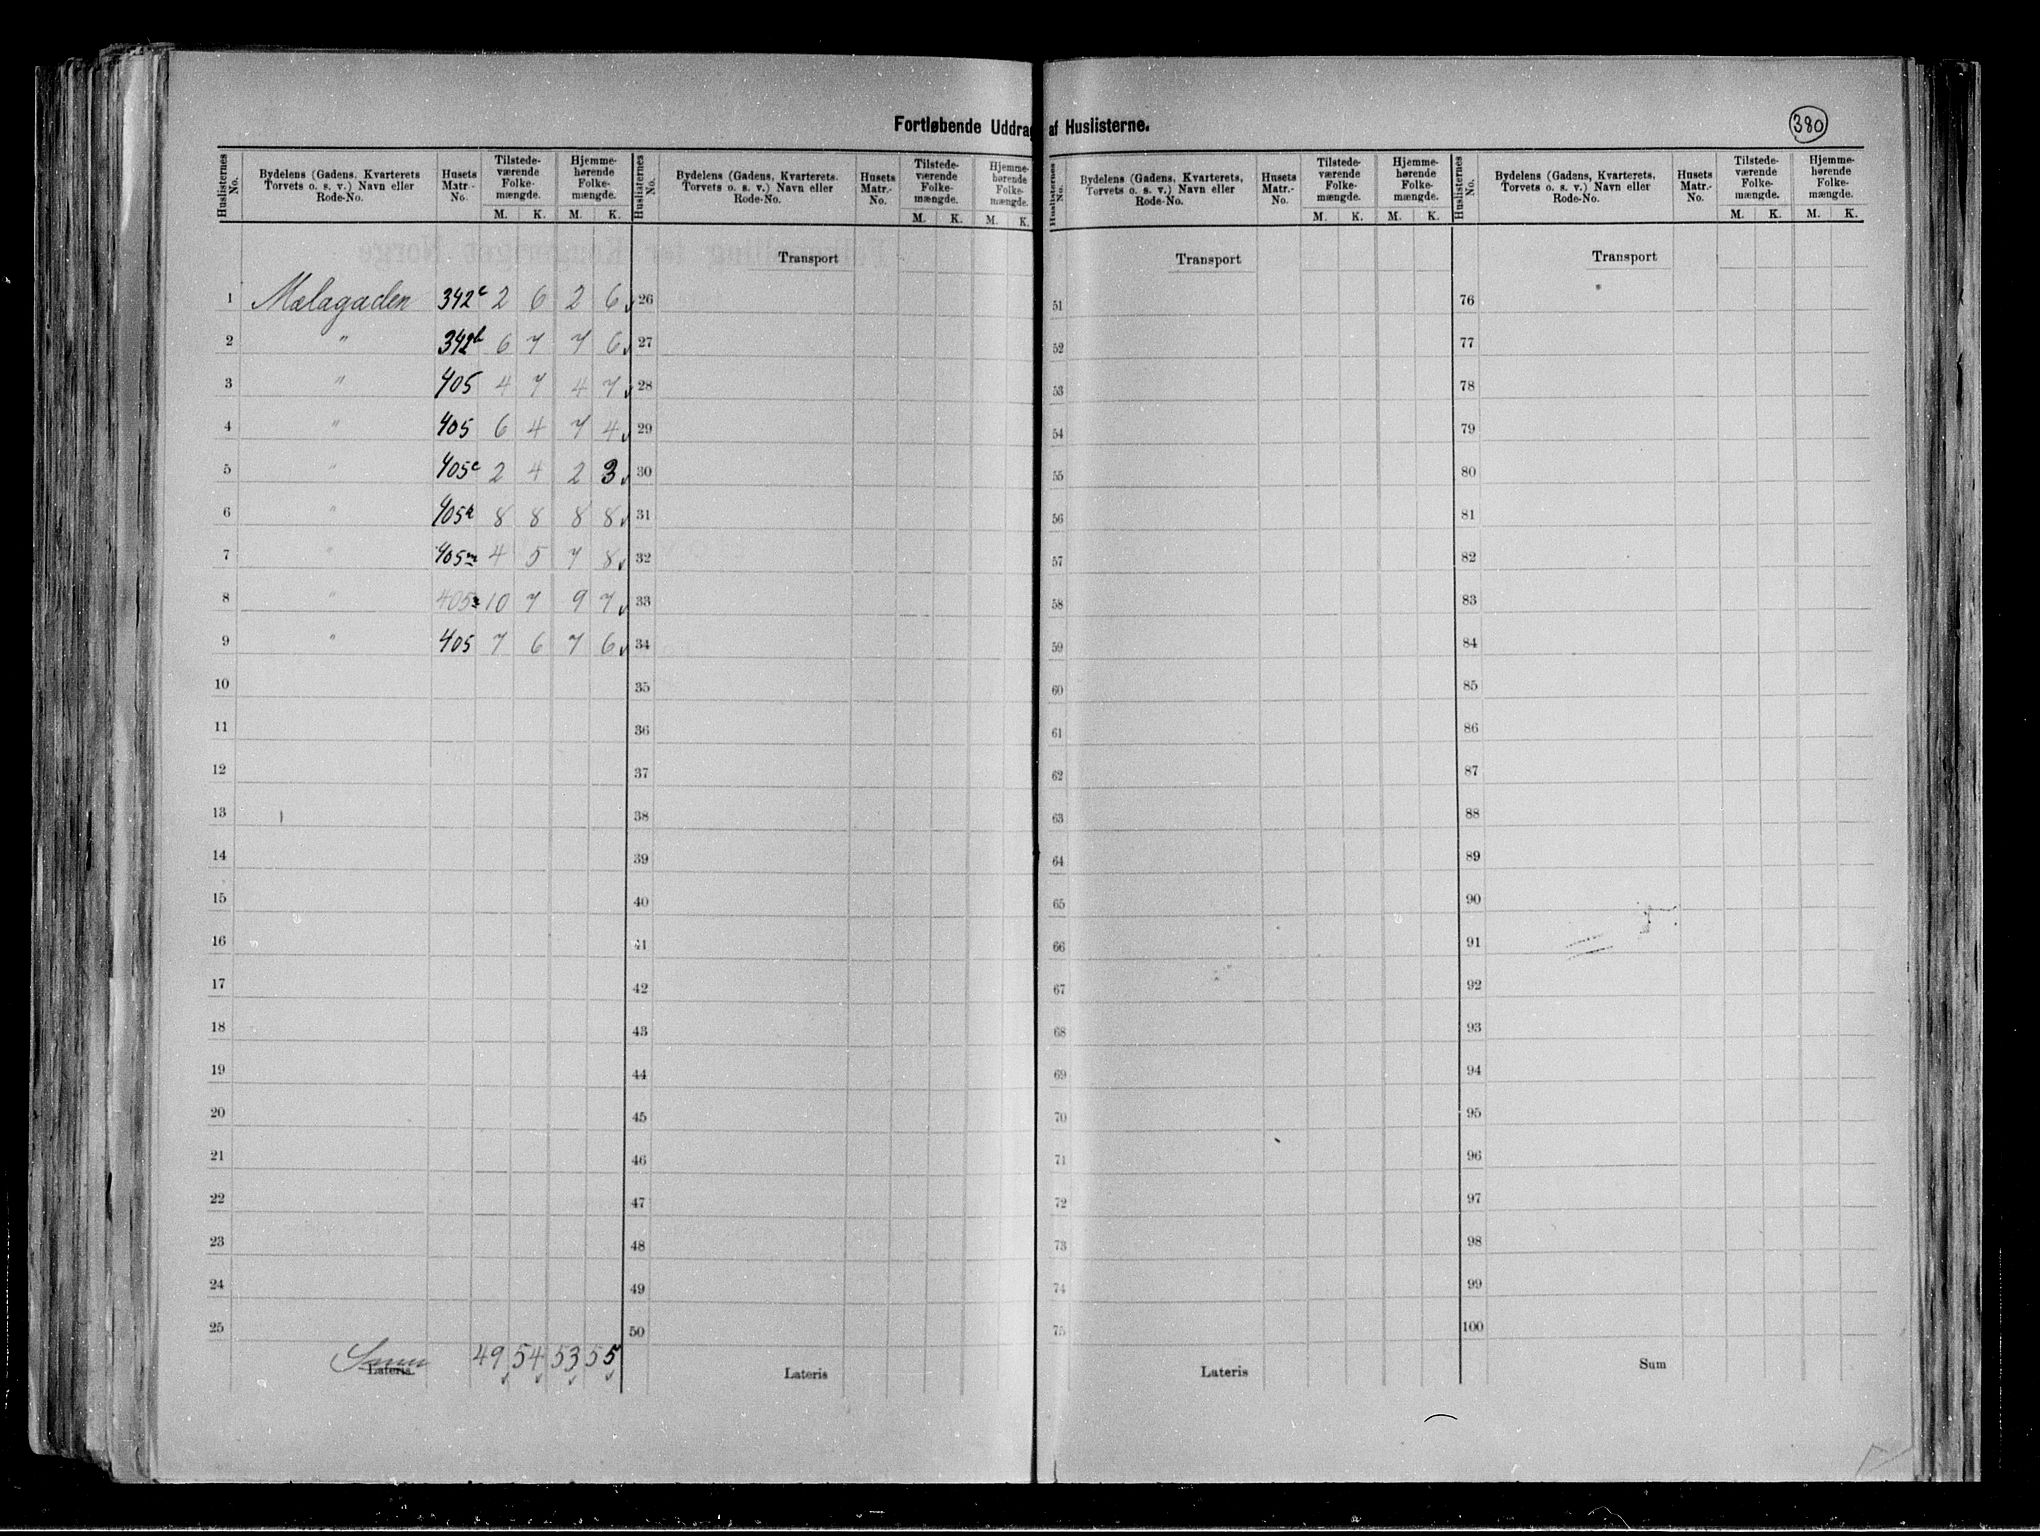 Fortløbende Uddrag af Huslisterne.
380
Huslisternes No. | Bydelens (Gadens, Kvarterets Torvets o. s. v.) Navn eller Rode-No. | Husets Matr.-No. | Tilstedeværende Folkemængde. M. K. | Hjemmehørende Folkemængde. M. K.
1 Mælagaden 342c 2 6 2 6
2 " 342b 6 7 7 6
3 " 405 4 7 4 7
4 " 405 6 4 7 4
5 " 405c 2 4 2 3
6 " 405a 8 8 8 8
7 " 405m 4 5 7 8
8 " 405 10 7 9 7
9 " 405 7 6 7 6
10
11
12
13
14
15
16
17
18
19
20
21
22
23
24
25
Sum Lateris 49 54 53 55
Huslisternes No. | Bydelens (Gadens, Kvarterets. Torvets o. s. v.) Navn eller Rode-No. | Husets Matr.-No. | Tilstedeværende Folkemængde. M. K. | Hjemmehørende Folkemængde. M. K.
Transport
26
27
28
29
30
31
32
33
34
35
36
37
38
39
40
41
42
43
44
45
46
47
48
49
50
Lateris
Huslisternes No. | Bydelens (Gadens, Kvarterets, Torvets o. s. v.) Navn eller Rode-No. | Husets Matr.-No. | Tilstedeværende Folkemængde. M. K. | Hjemmehørende Folkemængde. M. K.
Transport
51
52
53
54
55
56
57
58
59
60
61
62
63
64
65
66
67
68
69
70
71
72
73
74
75
Lateris
Huslisternes No. | Bydelens (Gadens, Kvarterets, Torvets o. s. v.) Navn eller Rode-No. | Husets Matr.-No. | Tilstedeværende Folkemængde. M. K. | Hjemmehørende Folkemængde. M. K.
Transport
76
77
78
79
80
81
82
83
84
85
86
87
88
89
90
91
92
93
94
95
96
97
98
99
100
Sum